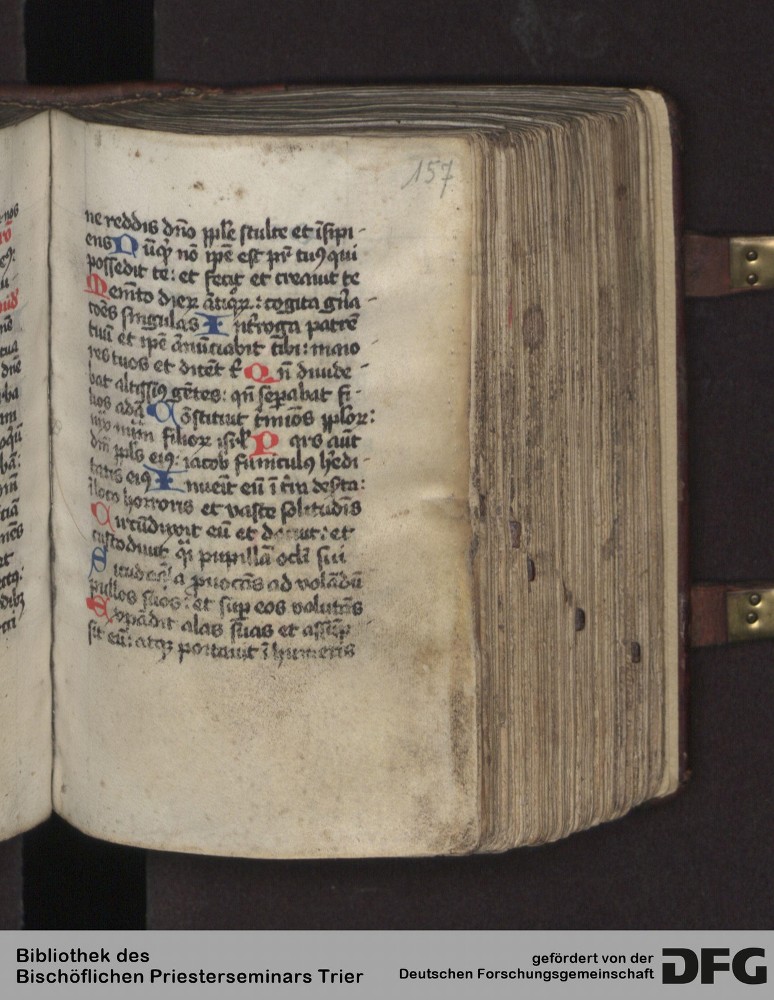 157
ne reddis dño pple stulte et ĩsipi-
ens Nũqꝫ nõ ipẽ est pr̃ tuꝰ qui
possedit te: et fecit et creauit te
Memẽto dieꝝ ãtiqꝝ: cogita gña-
cões singulas Int̃roga patrẽ
tuũ et ipẽ ãnũciabit tibi: maio
res tuos et dicẽt t̃ Qñ diuide-
bat altissiꝰ gẽtes: qñ sepabat fi-
lios adã Cõstituit t̃mios pploꝝ:
filioꝝ isrl̃ Pars aũt
dñi ppls eiꝰ: iacob funiculꝰ hẽdi-
tatis eiꝰ Inueĩt eũ ĩ t̃ra des̃ta:
ĩ loco horroris et vaste solitudĩs
Circũduxit eũ et docuit: et
custodiuit q̃i pupillã ocl̃i sui
Sicud aq̃l̃a puocãs ad volãdũ
pullos suos: et sup eos volitãs
Expãdit alas suas et assũp
sit eũ: atqꝫ portauit ĩ humeris
Bibliothek des
Bischöflichen Priesterseminars Trier
gefördert von der
Deutschen Forschungsgemeinschaft
DFG